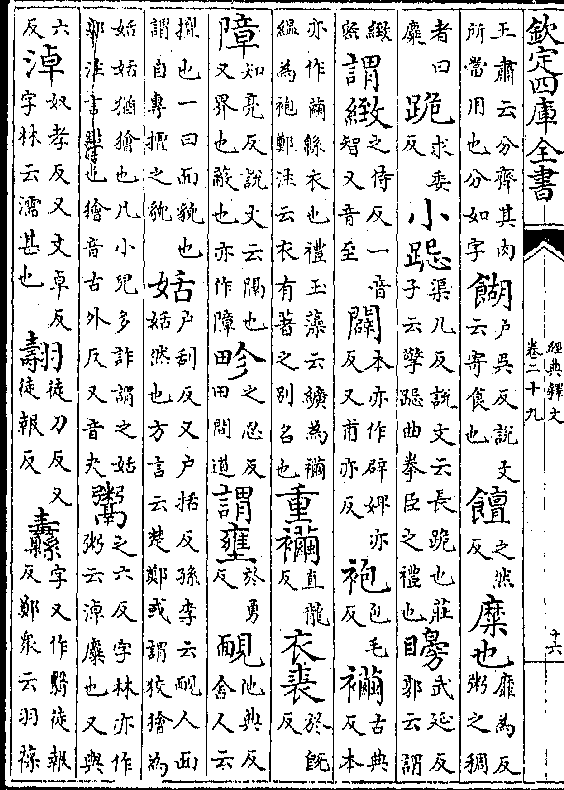 欽定四庫全書
經典釋文
卷二十九
十六
王肅云分齊其肉
所當用也分如字
餬
戶吳反說文
云寄食也
饘
之然
反
糜也
靡為反
粥之稠
者曰
糜
跪
求委
反
小跽
渠几反說文云長跪也莊
子云擎跽曲拳臣之禮也
矏
武延反
郭云謂
緻
密
謂緻
之侍反一音
智又音至
闢
本亦作辟婢亦
反又甫亦反
袍
包毛
反
襺
古典
反本
亦作繭緜衣也禮玉藻云纊為襺
縕為袍鄭注云衣有著之別名也
重襺
直龍
反
衣裘
於既
反
障
知亮反說文云隔也
又界也蔽也亦作障
畛
之忍反
田間道
謂壅
於勇
反
靦
他典反
舍人云
擅也一曰面貌也
謂自專擅之貌
姡
戶刮反又戶括反孫李云靦人面
姡然也方言云楚鄭或謂狡獪為
姡姡猶獪也凡小兒多詐謂之姡
郭注言黠也獪音古外反又音夬
鬻
之六反字林亦作
粥云淖糜也又與
六
反
淖
奴孝反又丈卓反
字林云濡甚也
翿
徒刀反又
徒報反
纛
字又作徒報
反鄭衆云羽葆